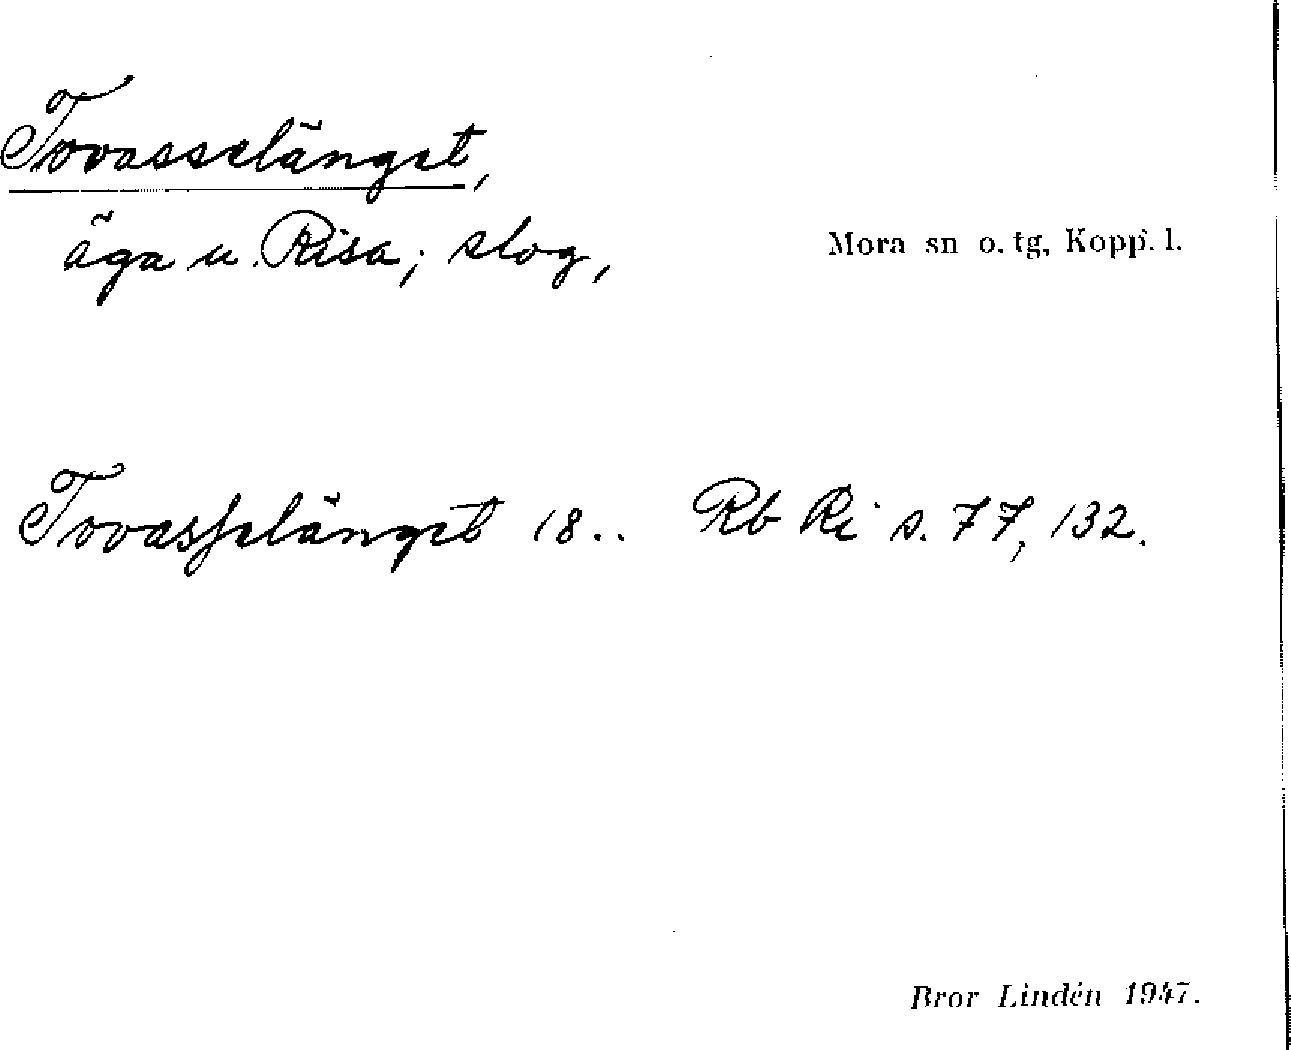 Tovasselänget,
äga u. Risa; slog,
Mora sn o. tg, Kopp. l.
Tovasselänget 18.. Rb Ri s. 77, 132.
Bror Lindén 1947.